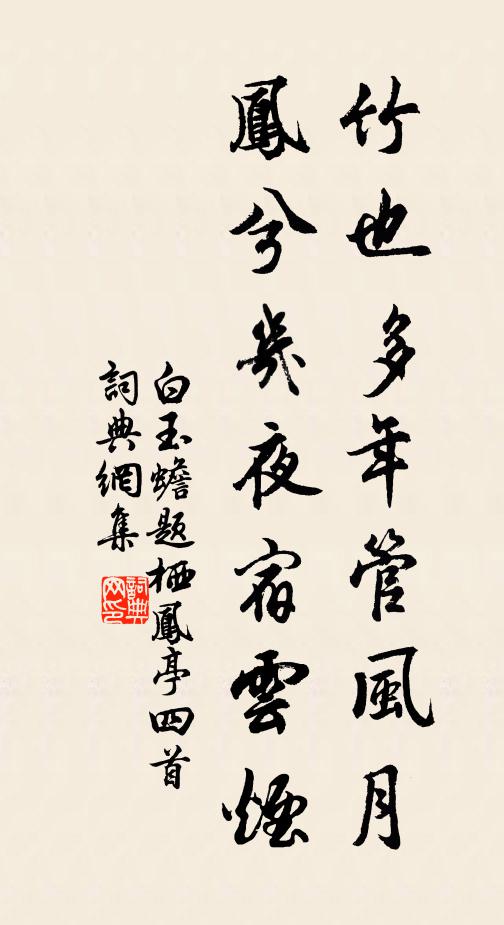 竹也多年管風月
鳳兮幾夜宿雲煙
白玉蟾題栖鳳亭四首
詞典網集
詞典网印